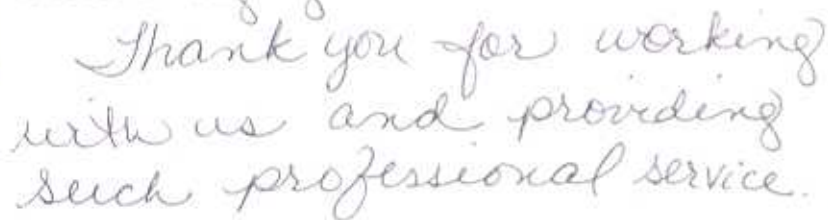 Thank you for working
with us and providing
such professional service.